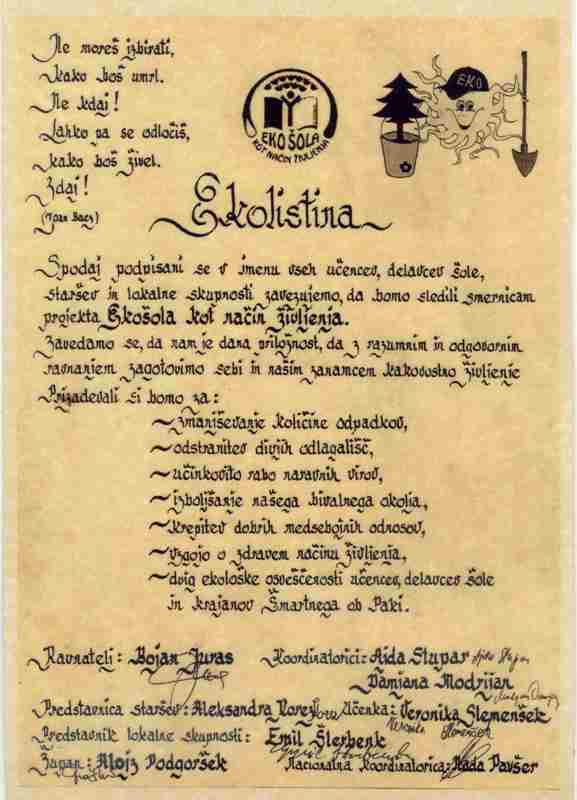 Ne moreš izbirati,
kako boš umrl.
Ne kdaj!
Lahko pa se odločiš,
kako boš živel.
Zdaj!
(Joan Baez)
EKO ŠOLA
KOT NAČIN ŽIVLJENJA
EKO
Ekolistina
Spodaj podpisani se v imenu vseh učencev, delavcev šole,
staršev in lokalne skupnosti zavezujemo, da bomo sledili smernicam
projekta Ekošola kot način življenja.
Zavedamo se, da nam je dana priložnost, da z razumnim in odgovornim
ravnanjem zagotovimo sebi in našim zanamcem kakovostno življenje
Prizadevali si bomo za:
~zmanjševanje količine odpadkov,
~odstranitev divjih odlagališč,
~učinkovito rabo naravnih virov,
~izboljšanje našega bivalnega okolja,
~krepitev dobrih medsebojnih odnosov,
~vzgojo o zdravem načinu življenja,
~dvig ekološke osveščenosti učencev, delavcev šole
in krajanov Šmartnega ob Paki.
Ravnatelj: Bojan Juras
Koordinatorici: Ajda Stupar
Damjana Modrijan
Predstavnica staršev: Aleksandra
Učenka: Veronika Slemenšek
Predstavnik lokalne skupnosti: Emil Sterbenk
Župan: Alojz Podgoršek
Nacionalna koordinatorica: Nada Pavšer